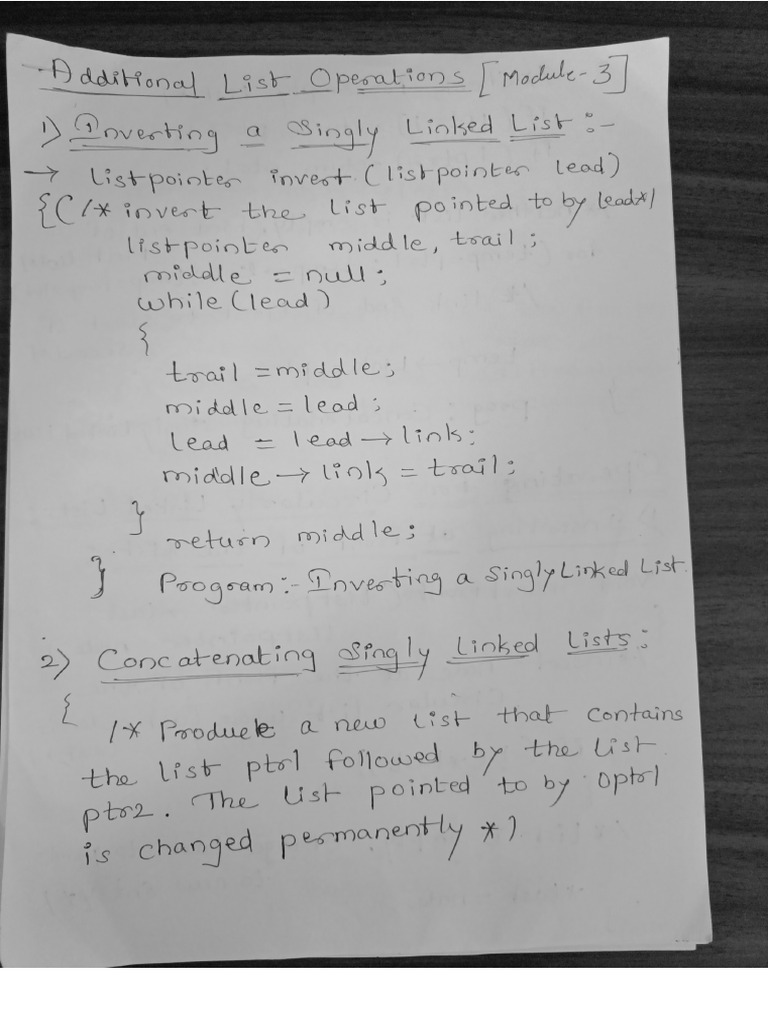 Additional List Operations [Module-3]
1) Inverting a Singly Linked List :-
→ listpointer invert (listpointer lead)
{(/* invert the list pointed to by lead*/
listpointer middle, trail;
middle = null;
while (lead)
{
trail = middle;
middle = lead;
lead = lead → link;
middle → link = trail;
}
return middle;
} Program:- Inverting a Singly Linked List.
2) Concatenating Singly Linked Lists:
{
/* Produce a new list that contains
the list ptr1 followed by the list
ptr2. The list pointed to by 0ptr1
is changed permanently *)